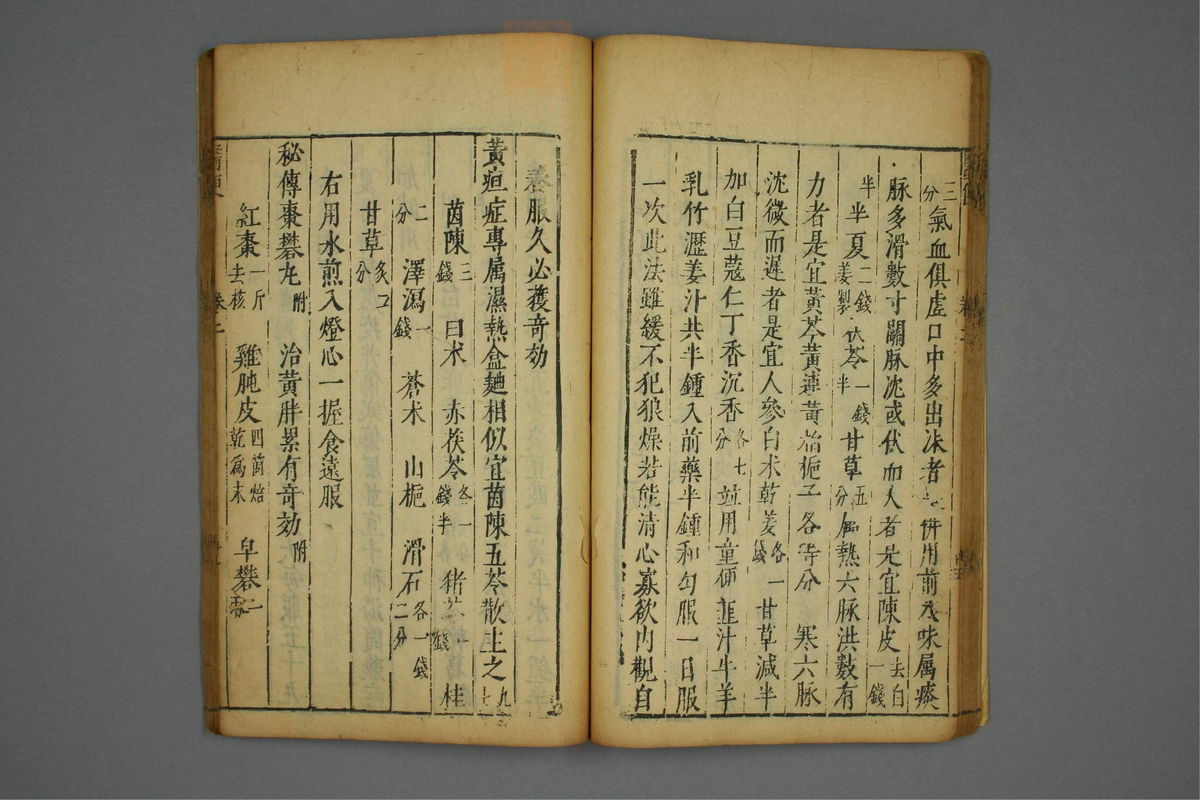 三分氣血俱虛口中多出沫者 併用前八味属痰
脉多滑數寸關脉沈或伏而大者是宜陳皮去白一錢
半半夏二錢姜製伏苓一錢半甘草五分属熱六脉洪數有
力者是宜黄芩黄連黄栢梔子各等分 寒六脉
沈微而遲者是宜人參白术乾姜各一錢甘草減半
加白豆蔻仁丁香沉香各七分並用童便韮汁牛羊
乳竹瀝姜汁共半鍾入前藥半鍾和匀服一日服
一次此法雖緩不犯狼燥若能清心寡欲内觀自
養服久必獲奇効
黄疸症專属濕熱盒麯相似宜茵陳五苓散主之九七
茵陳三錢 白术 赤茯苓各一錢半 猪苓一錢 桂
二分 澤瀉一錢 蒼术 山梔 滑石各一錢二分
甘草炙二分
右用水煎入燈心一握食遠服
秘傳棗礬丸附 治黄胖累有奇効附
紅棗一斤去核 雞肫皮四箇焙乾爲末 皁礬二
卷二
卷二